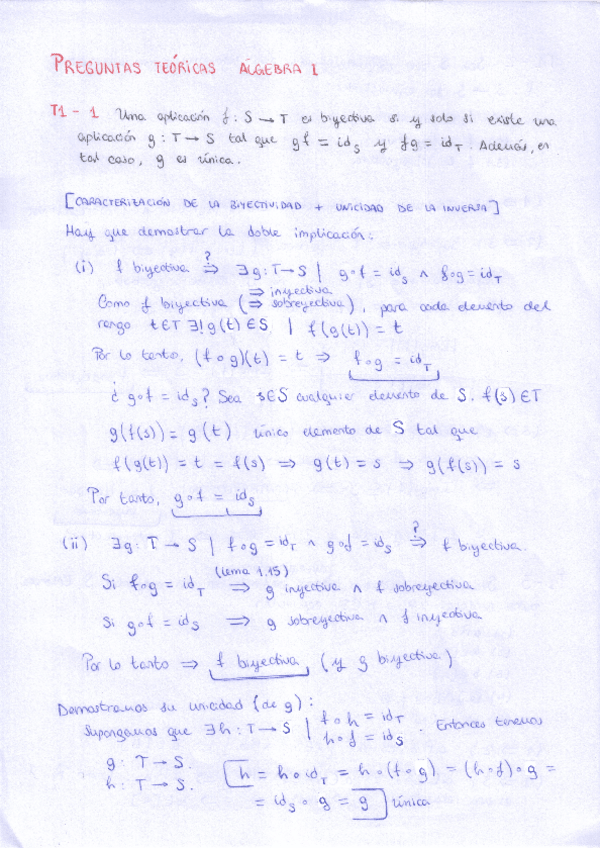 PREGUNTAS TEÓRICAS ÁLGEBRA I
T1 - 1 Una aplicación f : S → T es biyectiva si y solo si existe una
aplicación g : T → S tal que gf = id_S y fg = id_T. Además, en
tal caso, g es única.
[CARACTERIZACIÓN DE LA BIYECTIVIDAD + UNICIDAD DE LA INVERSA]
Hay que demostrar la doble implicación:
(i) f biyectiva ?⇒ ∃ g : T → S | g∘f = id_S ∧ f∘g = id_T
Como f biyectiva (⇒ inyectiva ⇒ sobreyectiva), para cada elemento del
rango t∈T ∃! g(t) ∈ S | f(g(t)) = t
Por lo tanto, (f∘g)(t) = t ⇒ f∘g = id_T
¿ g∘f = id_S? Sea s∈S cualquier elemento de S. f(s) ∈ T
g(f(s)) = g(t) único elemento de S tal que
f(g(t)) = t = f(s) ⇒ g(t) = s ⇒ g(f(s)) = s
Por tanto, g∘f = id_S
(ii) ∃ g : T → S | f∘g = id_T ∧ g∘f = id_S ?⇒ f biyectiva.
(lema 1.15)
Si f∘g = id_T ⇒ g inyectiva ∧ f sobreyectiva
Si g∘f = id_S ⇒ g sobreyectiva ∧ f inyectiva
Por lo tanto ⇒ f biyectiva (y g biyectiva)
Demostramos su unicidad (de g):
Supongamos que ∃ h : T → S | f∘h = id_T h∘f = id_S. Entonces tenemos
g : T → S.
h : T → S.
h = h∘id_T = h∘(f∘g) = (h∘f)∘g =
= id_S ∘ g = g única